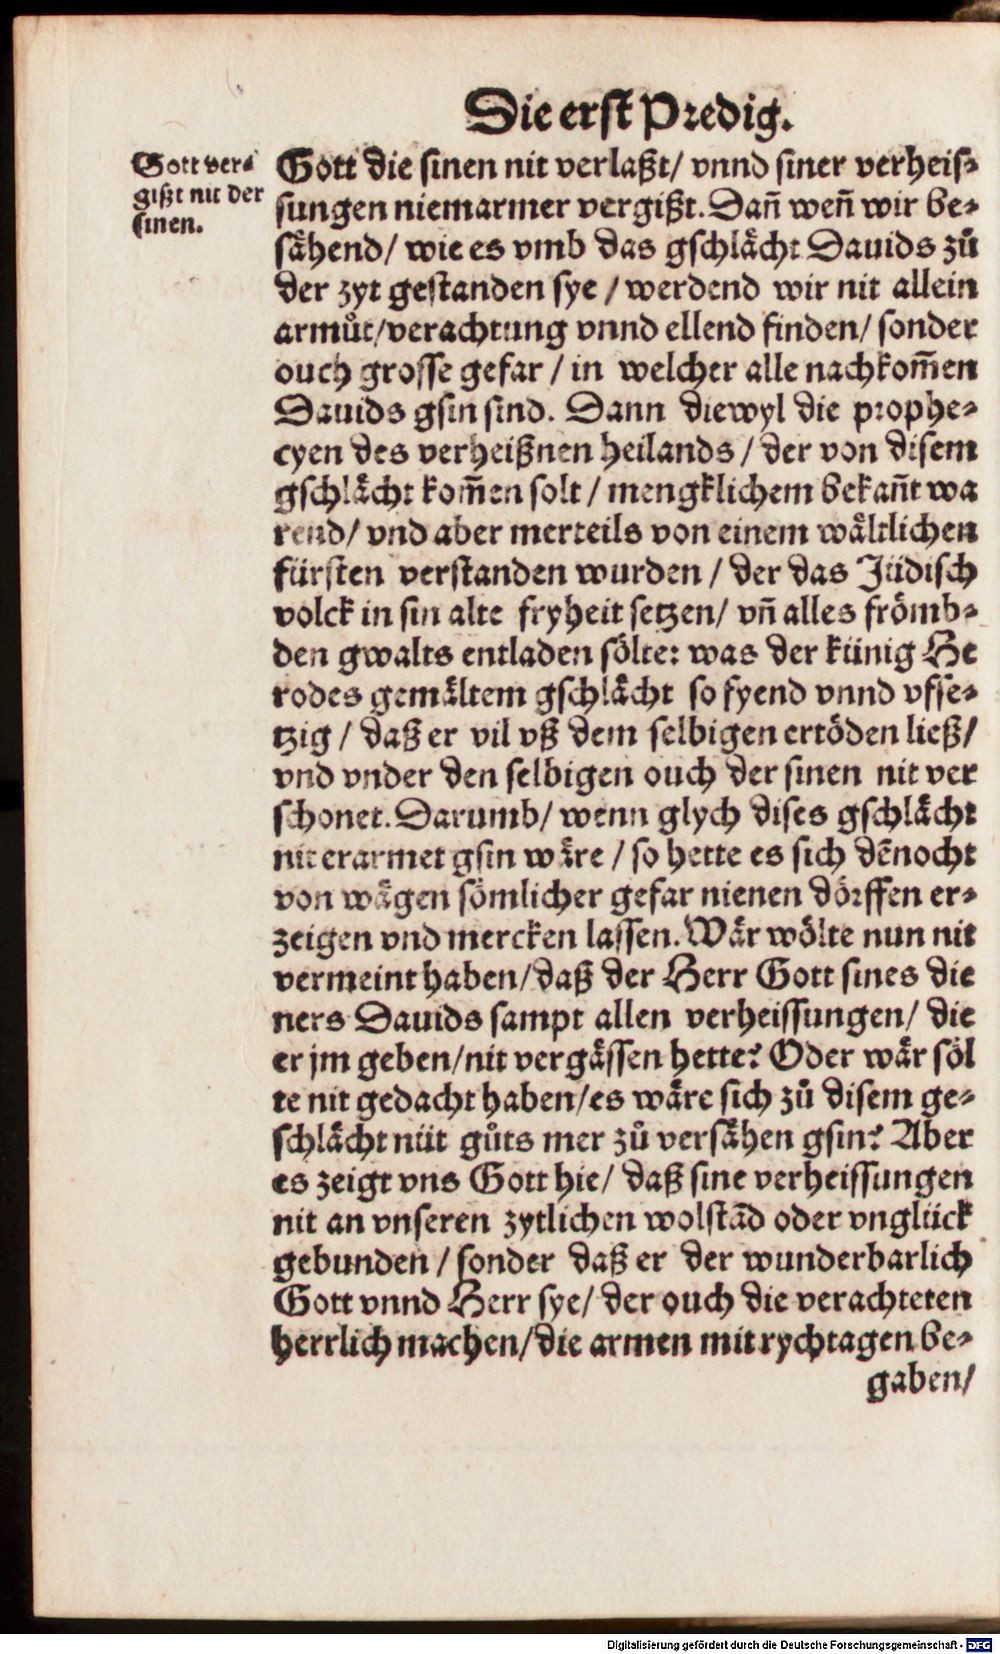 Die erst Predig.
Gott ver⸗
gißt nit der
sinen.
Gott die sinen nit verlaßt/ vnnd siner verheis⸗
sungen niemarmer vergißt. Dañ weñ wir be⸗
sähend/ wie es vmb das gschlächt Dauids zů
der zyt gestanden sye / werdend wir nit allein
armůt/verachtung vnnd ellend finden/ sonder
ouch grosse gefar / in welcher alle nachkom̃en
Dauids gsin sind. Dann diewyl die prophe⸗
cyen des verheißnen heilands / der von disem
gschlächt kom̃en solt / mengklichem bekañt wa
rend/ vnd aber merteils von einem wältlichen
fürsten verstanden wurden / der das Jüdisch
volck in sin alte fryheit setzen/ vñ alles frömb⸗
den gwalts entladen sölte: was der künig He
rodes gemältem gschlächt so fyend vnnd vffse⸗
tzig / daß er vil vß dem selbigen ertöden ließ/
vnd vnder den selbigen ouch der sinen nit ver
schonet. Darumb/ wenn glych dises gschlächt
nit erarmet gsin wäre / so hette es sich dẽnocht
von wägen sömlicher gefar nienen dörffen er⸗
zeigen vnd mercken lassen. Wär wölte nun nit
vermeint haben/daß der Herr Gott sines die
ners Dauids sampt allen verheissungen/ die
er jm geben/nit vergässen hette? Oder wär söl
te nit gedacht haben/es wäre sich zů disem ge⸗
schlächt nüt gůts mer zů versähen gsin? Aber
es zeigt vns Gott hie/ daß sine verheissungen
nit an vnseren zytlichen wolstãd oder vnglück
gebunden / sonder daß er der wunderbarlich
Gott vnnd Herr sye/ der ouch die verachteten
herrlich machen/die armen mit rychtagen be⸗
gaben/
Digitalisierung gefördert durch die Deutsche Forschungsgemeinschaft - DFG